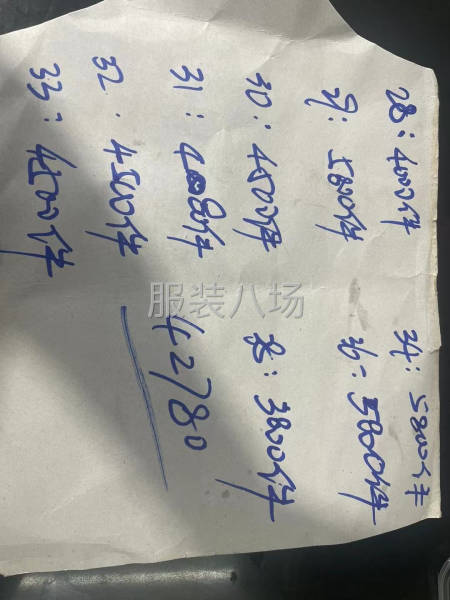 28:4000件
29:5800件
30:4500件
31:4080件
32:4500件
33:4500件
34:5800件
36:5800件
38:3800件
42780
服装八场